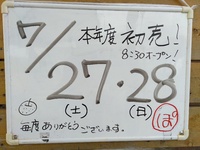 7/
本年度 初売!
8:30オープン!
27・28
(土) (日)
毎度ありがとうございます。
ぱ